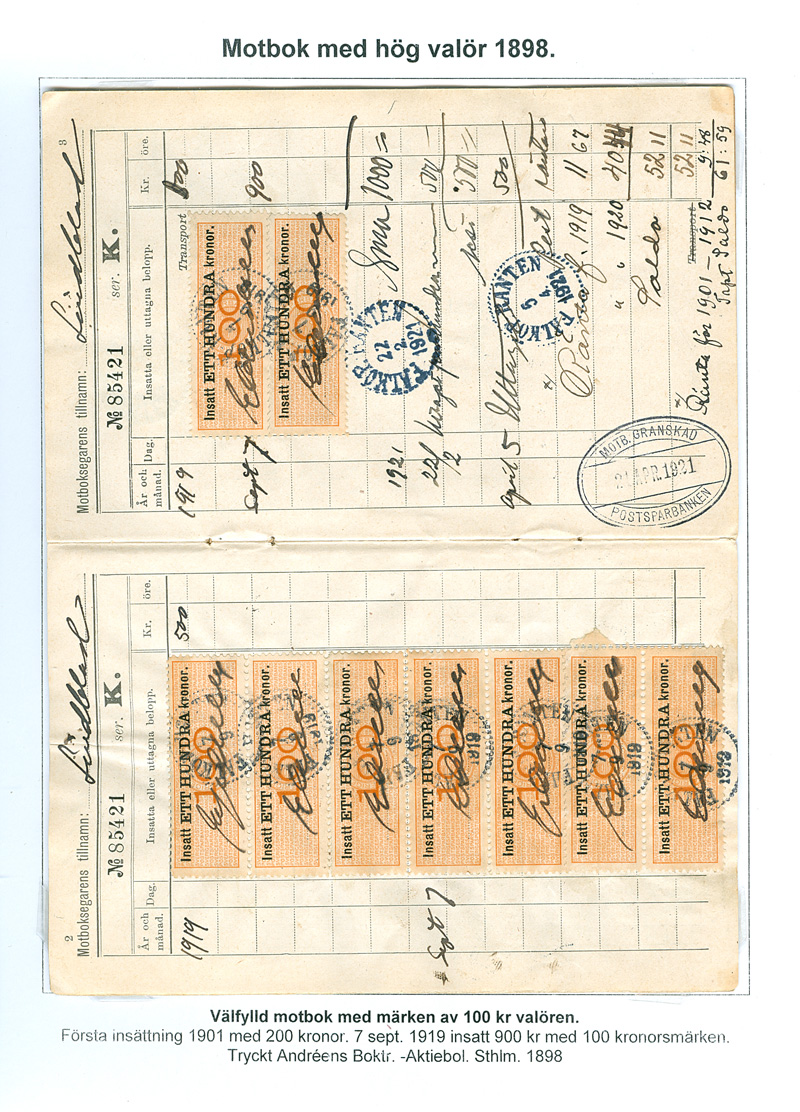 Motbok med hög valör 1898.
2
Motboksegarens tillnamn: Lindblad
№ 85421 ser. K.
År och månad. Dag. Insatta eller uttagna belopp. Kr. öre.
1919 500
Insatt ETT HUNDRA kronor.
100
Insatt ETT HUNDRA kronor.
100
Insatt ETT HUNDRA kronor.
100
Sept 7 Insatt ETT HUNDRA kronor.
100
Insatt ETT HUNDRA kronor.
100
Insatt ETT HUNDRA kronor.
100
1919
Insatt ETT HUNDRA kronor.
100
1919
3
Motboksegarens tillnamn: Lindblad
№ 85421 ser. K.
År och månad. Dag. Insatta eller uttagna belopp. Kr. öre.
1919 Transport
Insatt ETT HUNDRA kronor.
100
Sept 7 900
Insatt ETT HUNDRA kronor.
100
Sma 1000 =
1921
FALKÖP.-RANTEN
22
2
1921
22/2 500
500 =
april 5 Uttaget 500
FALKÖP.-RANTEN
5
4
1921
Ränta f. 1919 11 67
" " 1920 40 44
Saldo 52 11
Transport 52 11
Ränta för 1901–1912 9:48
Saldo 61:59
MOTB. GRANSKAD
21 APR. 1921
POSTSPARBANKEN
Välfylld motbok med märken av 100 kr valören.
Första insättning 1901 med 200 kronor. 7 sept. 1919 insatt 900 kr med 100 kronorsmärken.
Tryckt Andréens Boktr. -Aktiebol. Sthlm. 1898